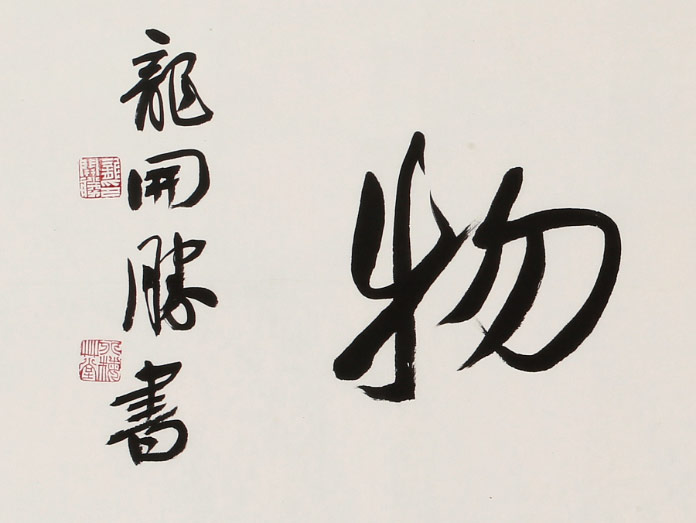 物
龍開勝書